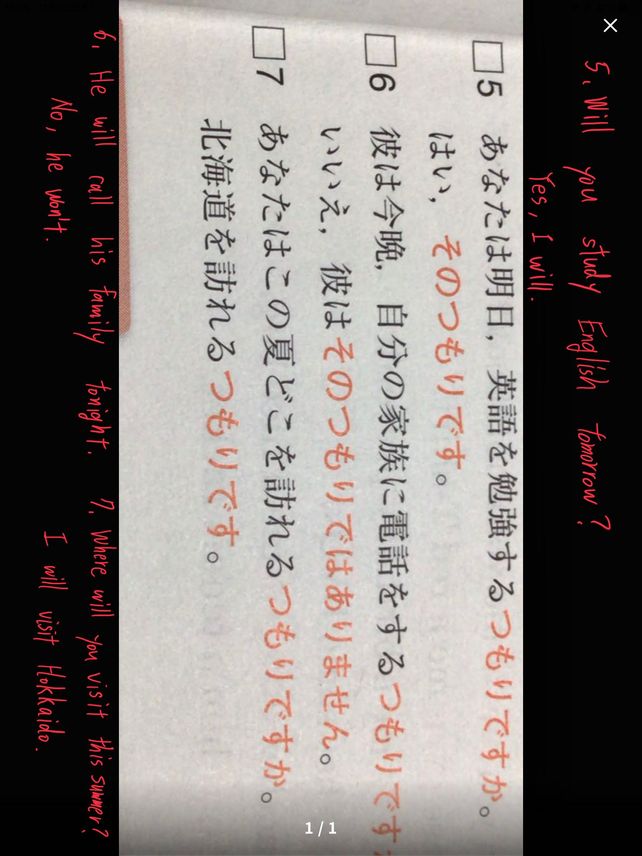 5. Will you study English tomorrow?
Yes, I will.
□5 あなたは明日，英語を勉強するつもりですか。
はい，そのつもりです。
□6 彼は今晩，自分の家族に電話をするつもりです
いいえ，彼はそのつもりではありません。
□7 あなたはこの夏どこを訪れるつもりですか。
北海道を訪れるつもりです。
6. He will call his family tonight.
No, he won't.
7. Where will you visit this summer?
I will visit Hokkaido.
1 / 1